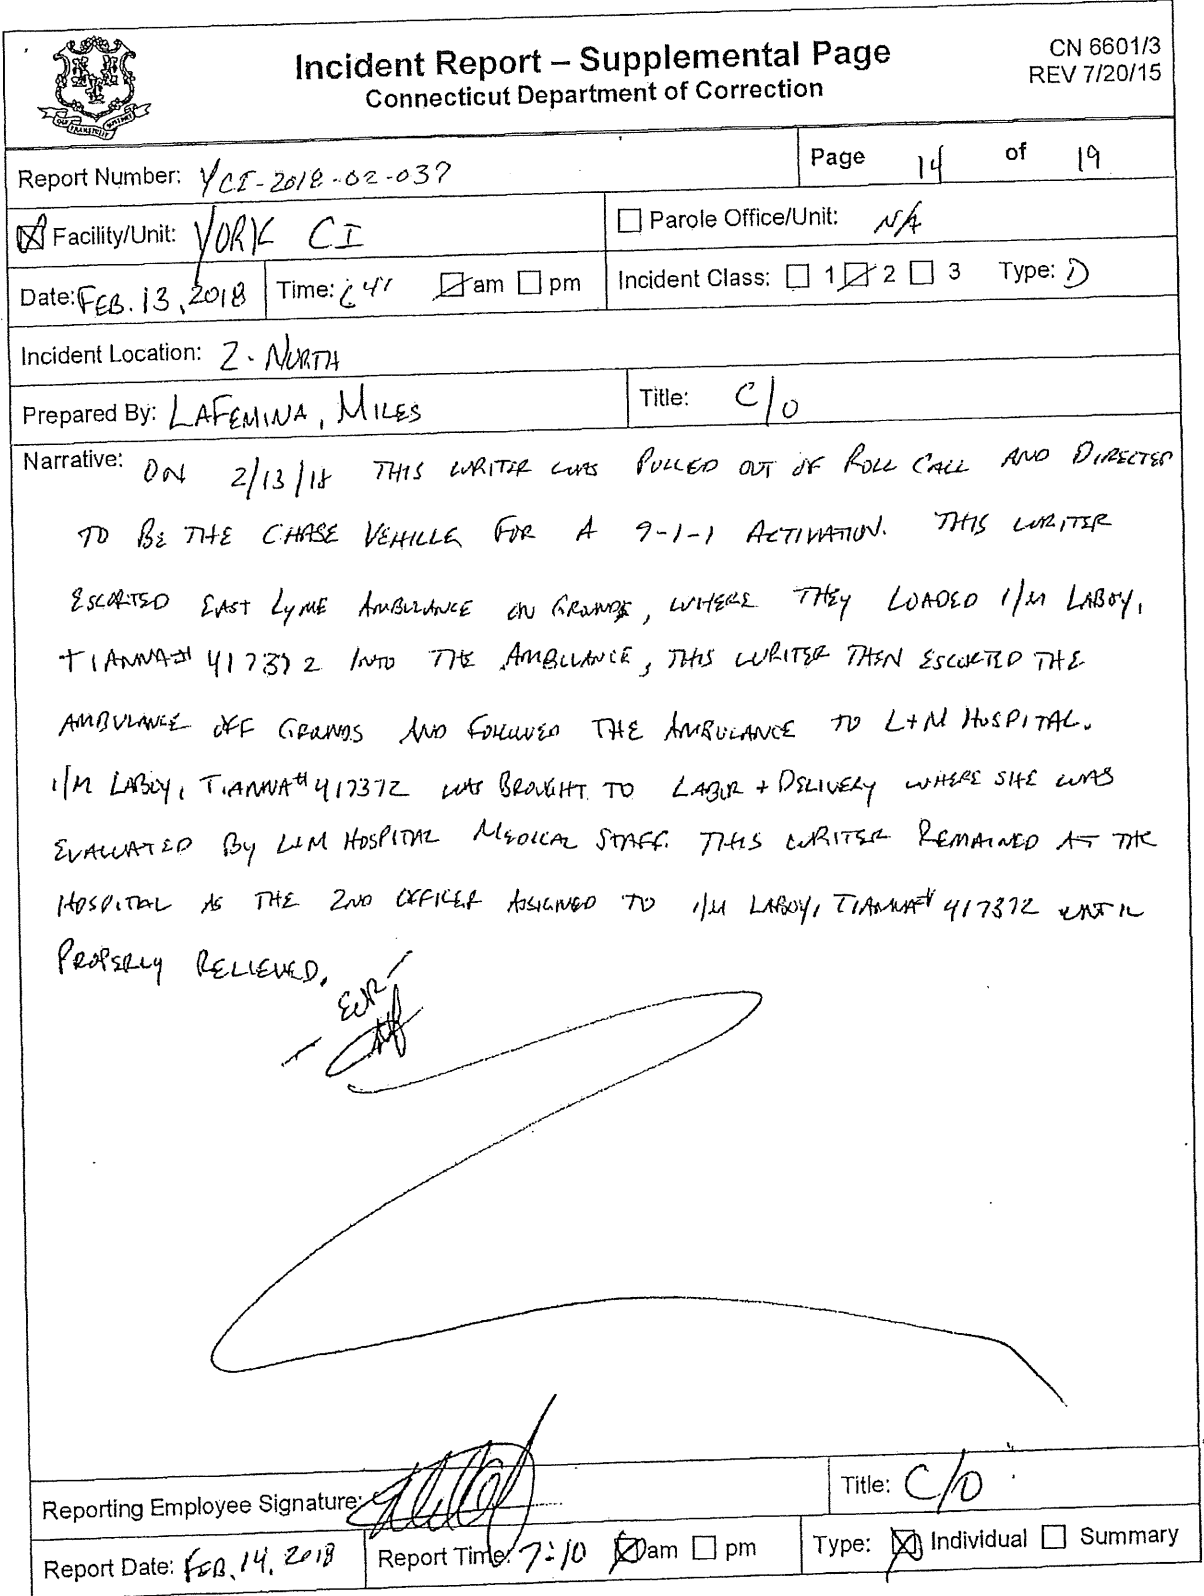 Incident Report – Supplemental Page
Connecticut Department of Correction
CN 6601/3
REV 7/20/15
Report Number: YCI-2018-02-037
Page 14 of 19
☒ Facility/Unit: YORK CI
☐ Parole Office/Unit: N/A
Date: FEB. 13, 2018 Time: ☒ am ☐ pm Incident Class: ☐ 1 ☒ 2 ☐ 3 Type: D
Incident Location: 2-NORTH
Prepared By: LAFEMINA, MILES Title: C/O
Narrative: ON 2/13/18 THIS WRITER WAS PULLED OUT OF ROLL CALL AND DIRECTED
TO BE THE CHASE VEHILLE FOR A 9-1-1 ACTIVATION. THIS WRITER
ESCORTED EAST LYME AMBULANCE ON GROUNDS, WHERE THEY LOADED I/M LABOY,
TIANNA# 417372 INTO THE AMBULANCE, THIS WRITER THEN ESCORTED THE
AMBULANCE OFF GROUNDS AND FOLLOWED THE AMBULANCE TO L+M HOSPITAL.
I/M LABOY, TIANNA# 417372 WAS BROUGHT TO LABOR + DELIVERY WHERE SHE WAS
EVALUATED BY L+M HOSPITAL MEDICAL STAFF. THIS WRITER REMAINED AT THE
HOSPITAL AS THE 2ND OFFICER ASSIGNED TO I/M LABOY, TIANNA# 417372 UNTIL
PROPERLY RELIEVED.
- EOR -
Reporting Employee Signature: Title: C/O
Report Date: FEB. 14, 2018 Report Time: 7:10 ☒ am ☐ pm Type: ☒ Individual ☐ Summary